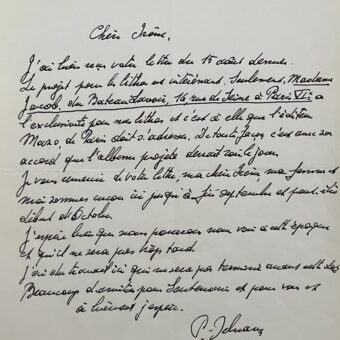 Chère Irène,
J'ai bien reçu votre lettre du 15 août dernier.
Le projet pour la litho est intéressant. Seulement, Madame
Jacob, du Bateau Lavoir, 16 rue de Seine à Paris VIe a
l'exclusivité pour mes lithos et c'est à elle que l'éditeur
Mazo, de Paris doit s'adresser. De toute façon c'est avec son
accord que l'album projeté devrait voir le jour.
Je vous remercie de votre lettre, ma chère Irène, ma femme et
moi sommes encore ici jusqu'à fin septembre et peut-être
début d'Octobre.
J'espère bien que nous pourrons nous voir à cette époque
et qu'il ne sera pas trop tard.
J'ai du travail ici qui ne sera pas terminé avant cette date
Beaucoup d'amitiés pour et pour vous et
à bientôt j'espère.
P. Delvaux